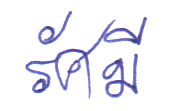 รัศมี